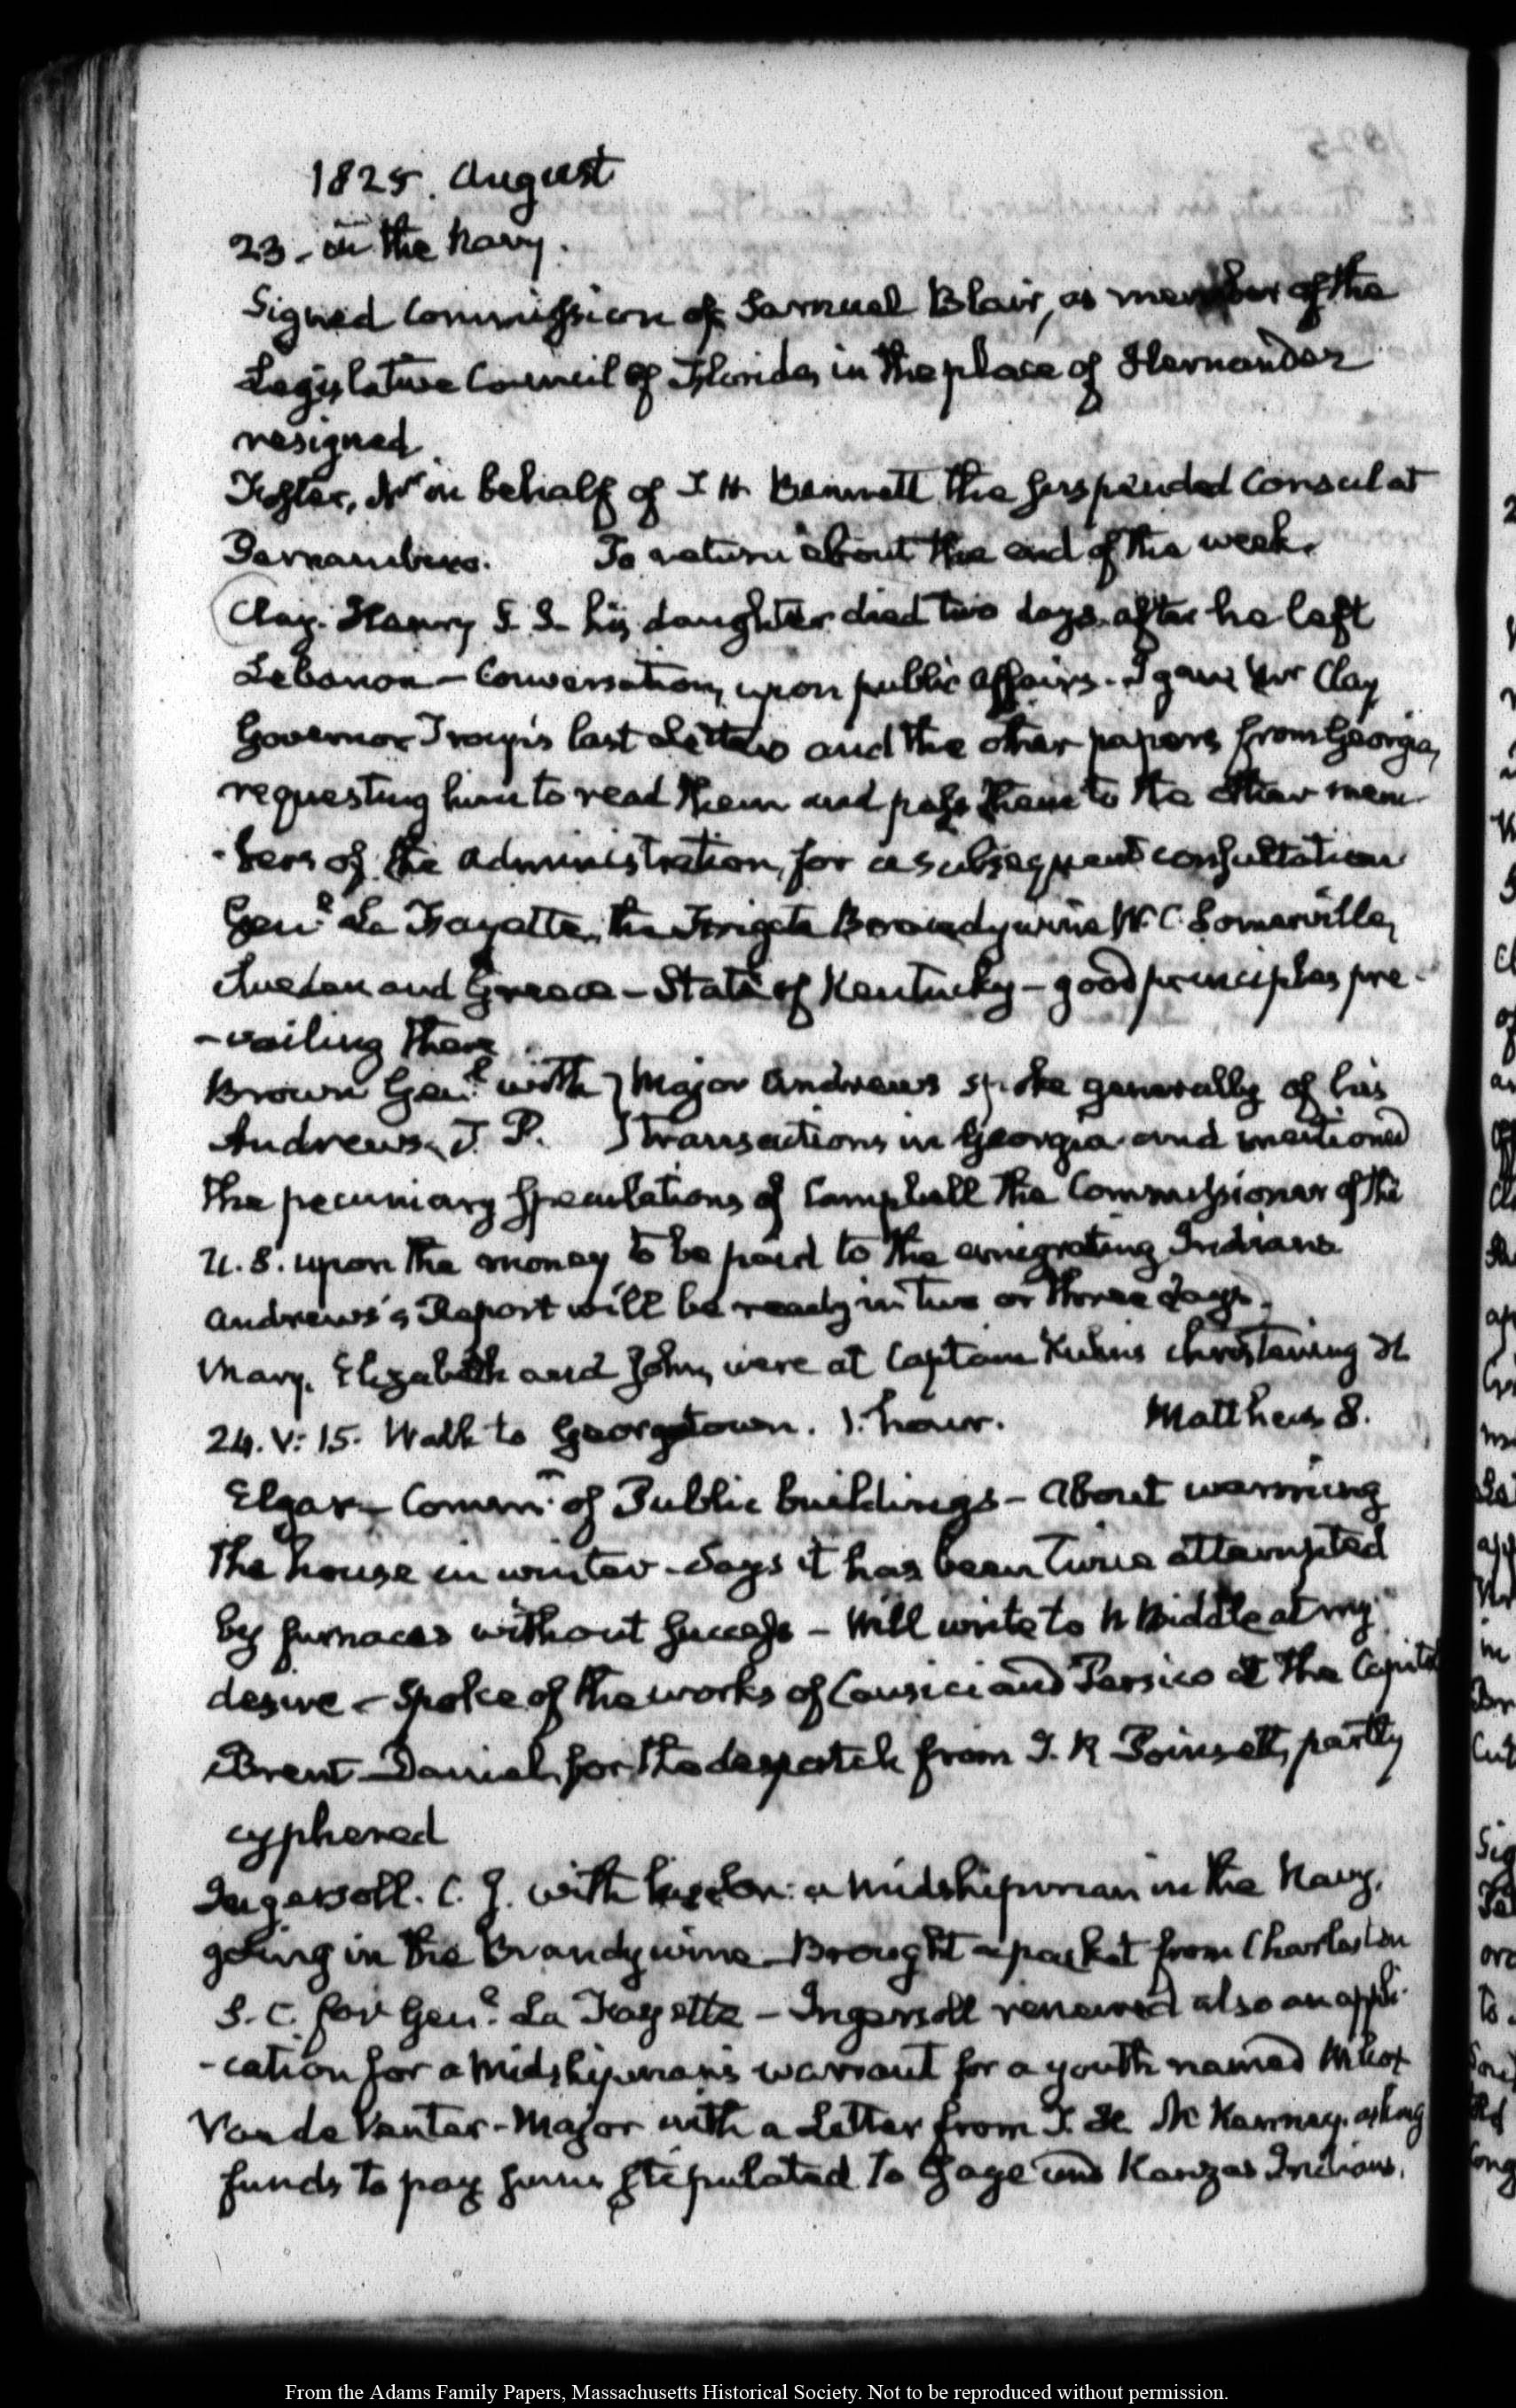 1825. August
23 - in the Navy.
Signed Commission of Samuel Blair, as member of the
Legislative Council of Florida, in the place of Hernandez
resigned
Foster, Mr on behalf of J H. Bennett the suspended Consul at
Pernambuco. To return about the end of the week.
Clay. Henry S. S. his daughter died two days after he left
Lebanon — Conversation, upon public affairs. I gave Mr Clay
Governor Troup's last Letters and the other papers from Georgia,
requesting him to read them and pass them to the other mem-
-bers of the administration, for a subsequent consultation
Genl. La Fayette, the Frigate Brandywine W. C. Somerville,
Sweden and Greece — State of Kentucky — good principles pre-
-vailing there
Brown Genl. with } Major Andrews spoke generally of his
Andrews. T. P. } transactions in Georgia and mentioned
the pecuniary speculations of Campbell the Commissioner of the
U. S. upon the money to be paid to the emigrating Indians.
Andrews's Report will be ready in two or three days.
Mary, Elizabeth and John, were at Captain christening
24. V: 15. Walk to Georgetown. 1. hour. Matthew 8.
Elgar — Commr. of Public buildings — About warming
the house in winter — Says it has been twice attempted
by furnaces without success — Will write to N Biddle at my
desire — Spoke of the works of Causici and Persico at the Capitol
Brent — Daniel, for the despatch from J. R Poinsett, partly
cyphered
Ingersoll. C. J. with his son: a Midshipman in the Navy,
going in the Brandywine — Brought a packet from Charleston
S. C. for Genl. La Fayette — Ingersoll renewed also an appli-
-cation for a Midshipman's warrant for a youth named
Van de Venter — Major with a Letter from T. L. McKenney asking
funds to pay sums stipulated to Osage and Kanzas Indians.
From the Adams Family Papers, Massachusetts Historical Society. Not to be reproduced without permission.